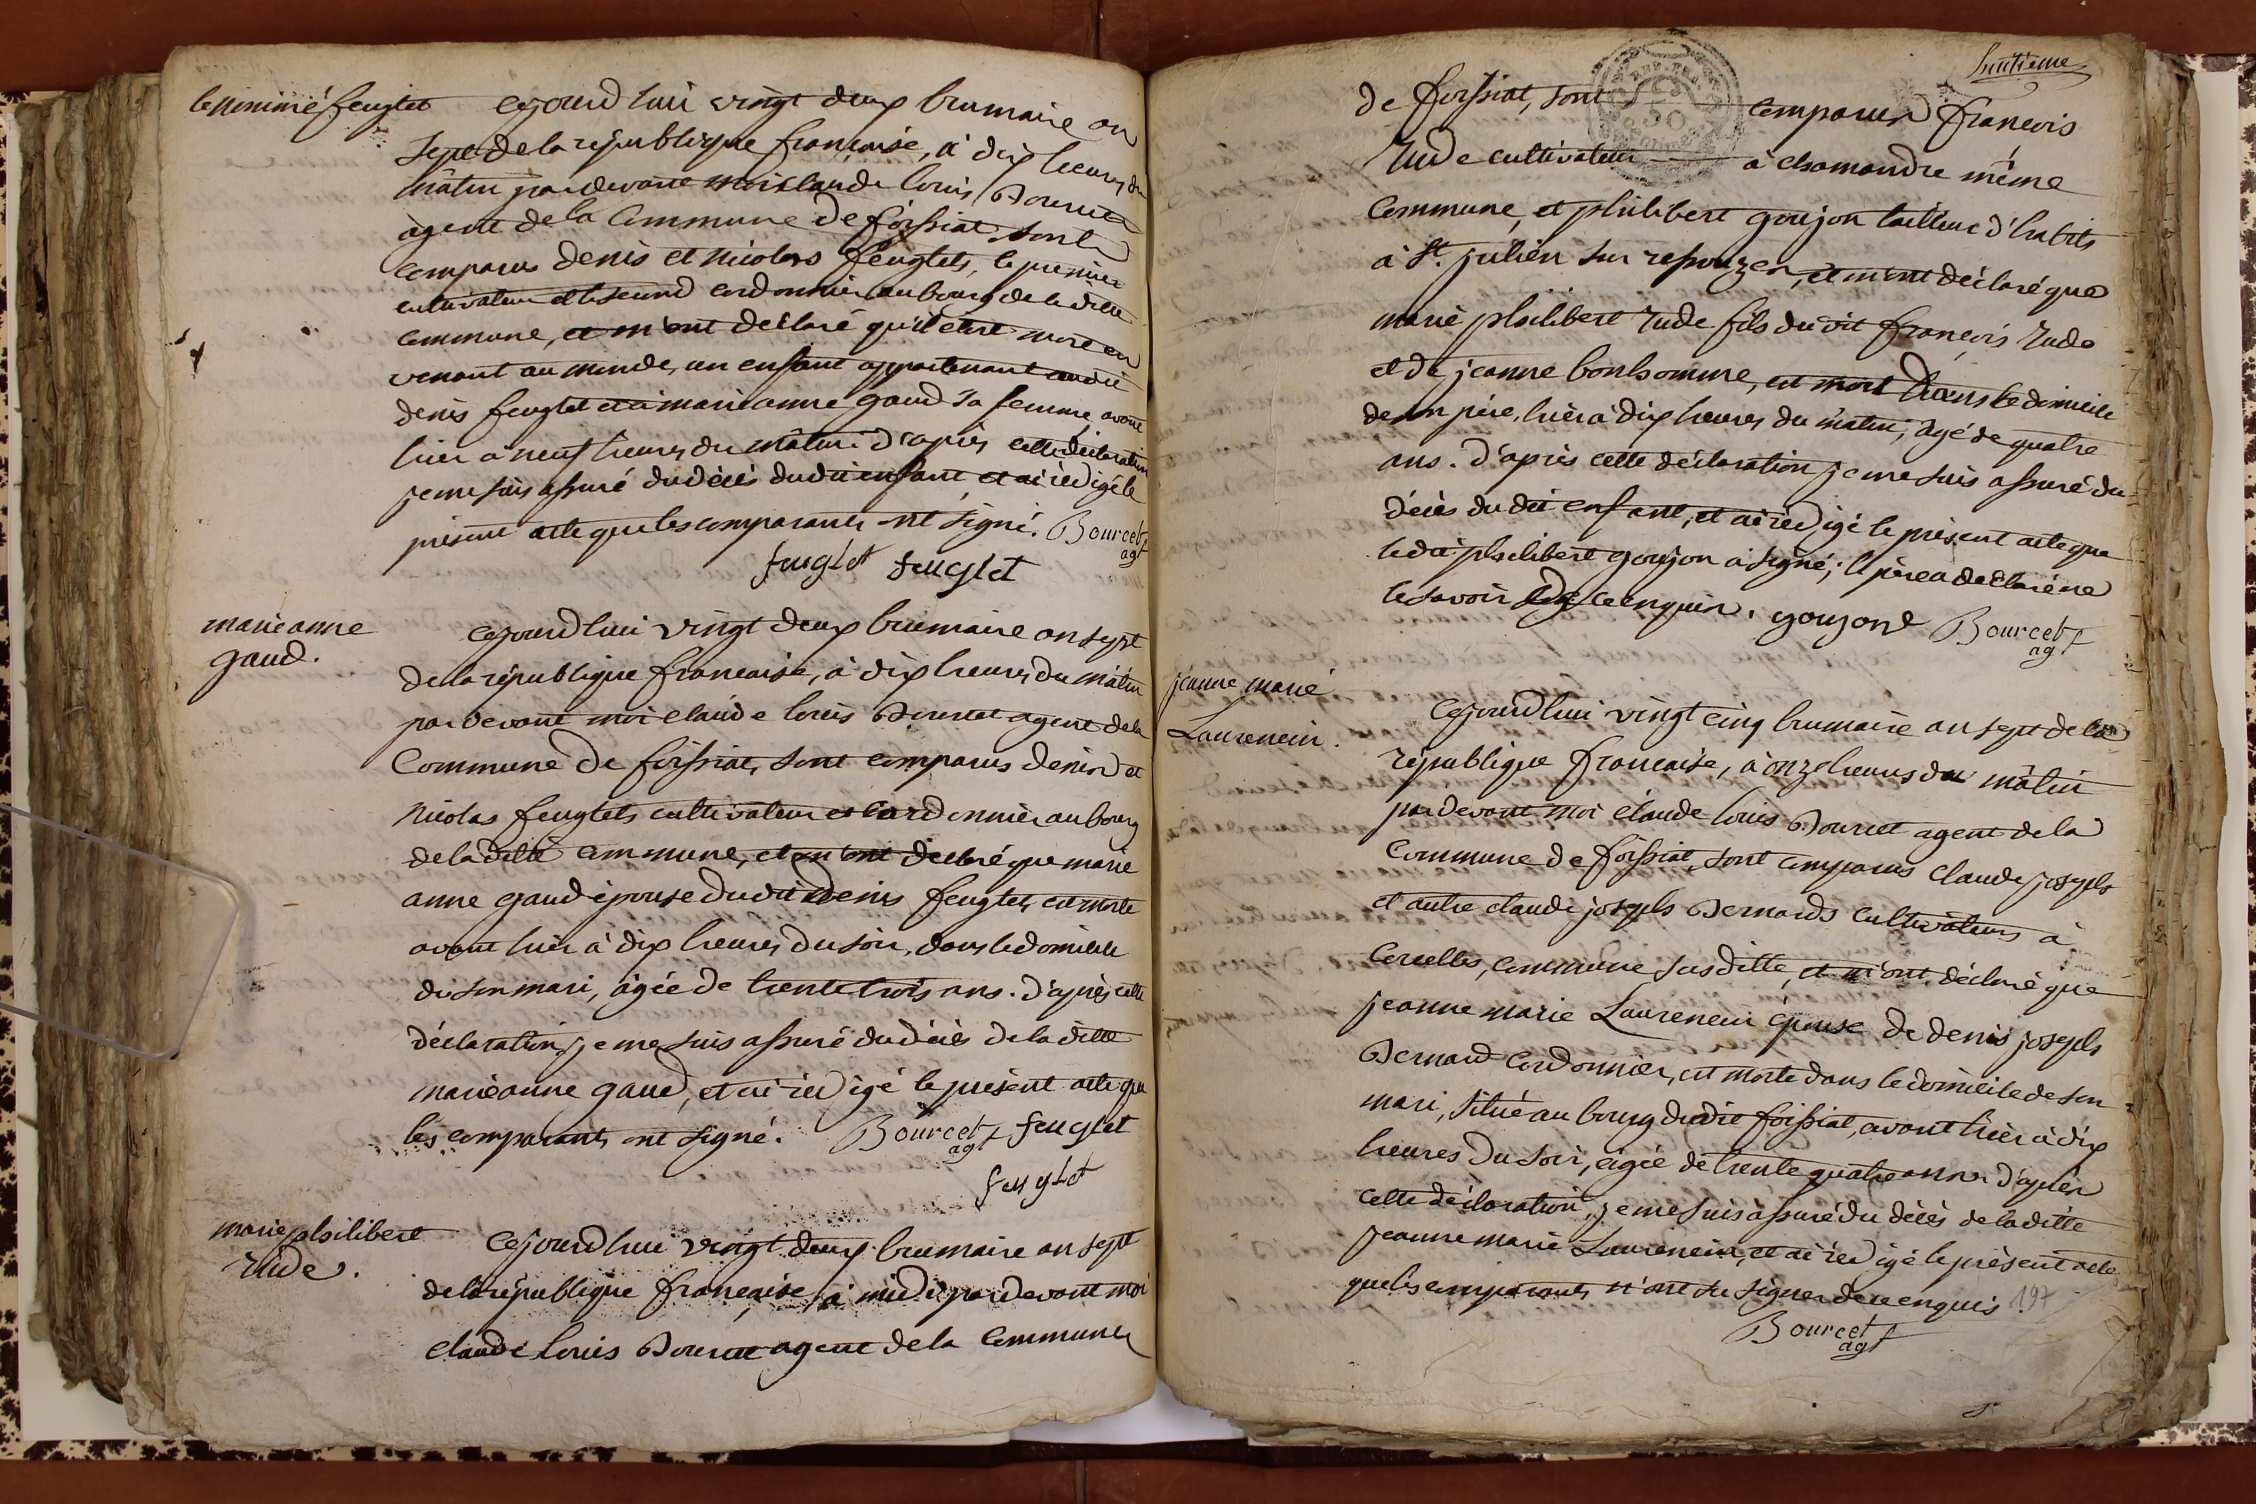 le nommé feuglet
cejourd'hui vingt deux brumaire an
sept de la république française, à dix heures du
mâtin pardevant moi claude louis Bourcet
agent de la Commune de foissiat, sont
comparus denis et nicolas feuglets, le premier
cultivateur et le second cordonnier au bourg de la ditte
commune, et m'ont déclaré qu'il étoit mort en
venant au monde, un enfant appartenant audit
denis feuglet et à marieanne gaud sa femme, avant
hier à neuf heures du mâtin. d'après cette déclaration
je me suis assuré du décès dudit enfant, et ai rédigé le
présent acte que les comparants ont signé. Bourcet
agt
feuglet feuglet
marieanne
gaud.
cejourd'hui vingt deux brumaire an sept
de la république française, à dix heures du mâtin
pardevant moi claude louis Bourcet agent de la
Commune de foissiat, sont comparus denis et
nicolas feuglets cultivateur et cordonnier au bourg
de la ditte commune, et m'ont déclaré que marie
anne gaud épouse dudit denis feuglet, est morte
avant hier à dix heures du soir, dans le domicile
de son mari, âgée de trente trois ans. d'après cette
déclaration, je me suis assuré du décès de la ditte
marieanne gaud, et ai rédigé le présent acte que
les comparants ont signé. Bourcet feuglet
agt
feuglet
marie philibert
rude.
cejourd'hui vingt deux brumaire an sept
de la république française, à midi pardevant moi
claude louis Bourcet agent de la Commune
huitieme
de foissiat, sont comparus françois
rude cultivateur à chamandre même
commune, et philibert goujon tailleur d'habits
à St. julien sur ressouze, et m'ont déclaré que
marie philibert rude fils dudit françois rude
et de jeanne bonhomme, est mort dans le domicile
de son père, hièr à dix heures du mâtin, âgé de quatre
ans. d'après cette déclaration je me suis assuré du
décès dudit enfant, et ai rédigé le présent acte que
ledit philibert goujon a signé; le père a déclaré ne
le savoir de ce enquis. goujond Bourcet
agt
jeanne marie
Laurencin.
Cejourd'hui vingt cinq brumaire an sept de la
république française, à onze heures du mâtin
pardevant moi claude louis Bourcet agent de la
Commune de foissiat, sont comparus claude joseph
et autre claude joseph Bernards cultivateurs à
Corcelles, commune susditte, et m'ont déclaré que
jeanne marie Laurencin épouse de denis joseph
Bernard cordonnier, est morte dans le domicile de son
mari, situé au bourg dudit foissiat, avant hièr à dix
heures du soir, âgée de trente quatre ans. d'après
cette déclaration, je me suis assuré du décès de la ditte
jeanne marie Laurencin, et ai rédigé le présent acte
que les comparants n'ont su signer de ce enquis. 197
Bourcet
agt